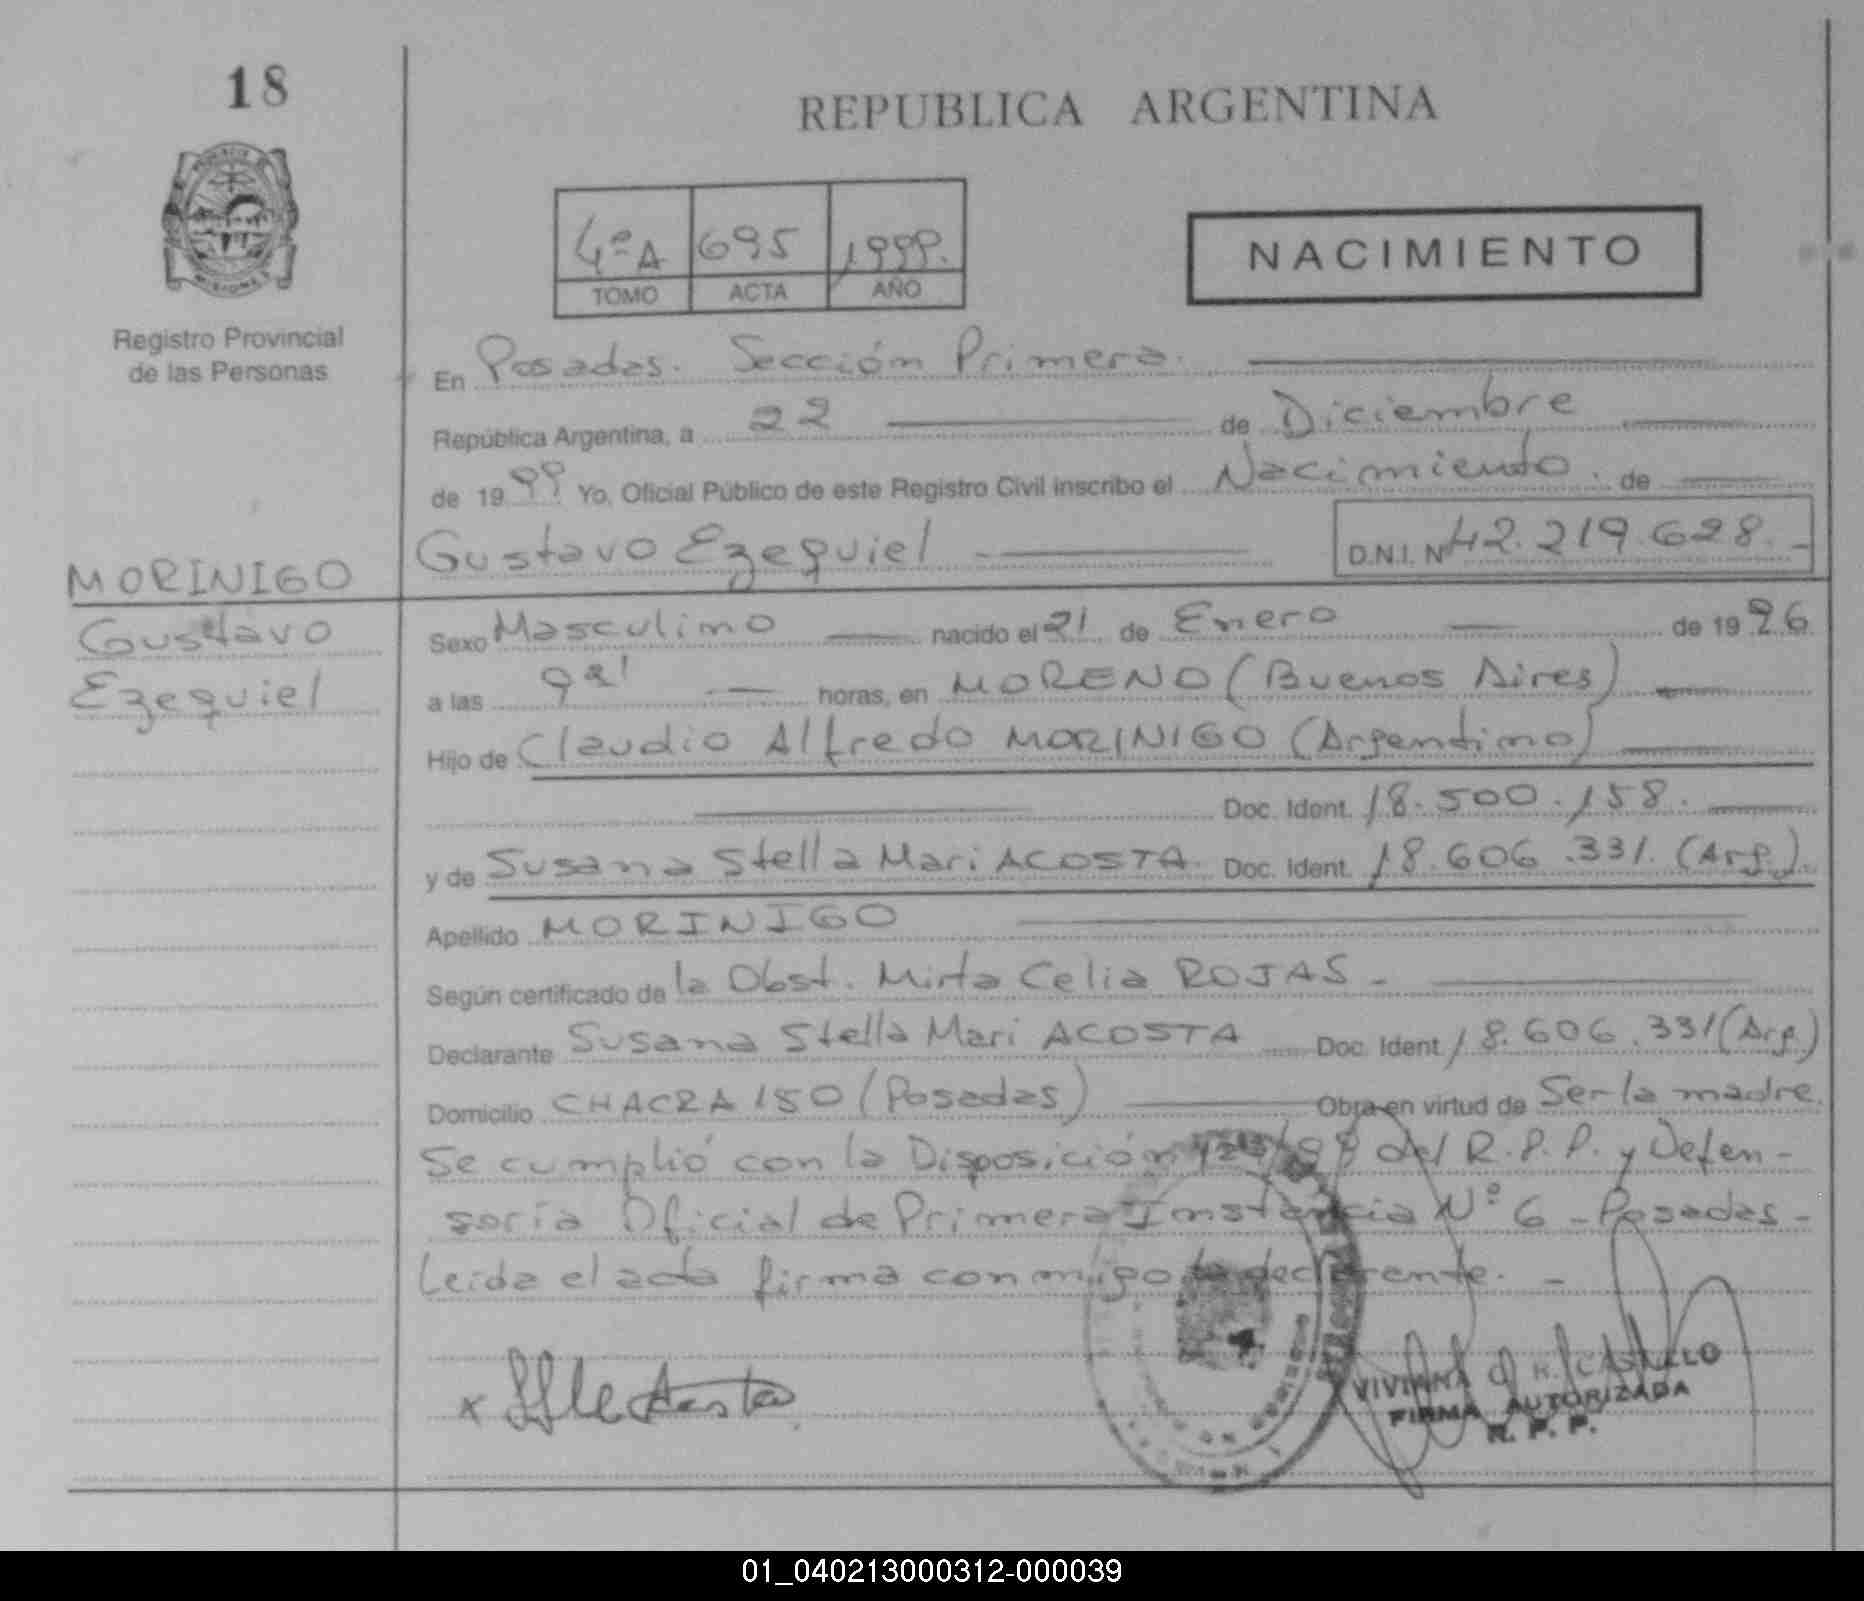 18
REPUBLICA ARGENTINA
4ºA 695 1999.
TOMO ACTA AÑO
NACIMIENTO
Registro Provincial
de las Personas
En Posadas. Sección Primera.
República Argentina, a 22 de Diciembre
de 1999 Yo, Oficial Público de este Registro Civil inscribo el Nacimiento. de
MORINIGO
Gustavo Ezequiel D.N.I. Nº 42.219.628.-
Gustavo
Ezequiel
Sexo Masculino nacido el 21 de Enero de 1996
a las horas, en MORENO (Buenos Aires)
Hijo de Claudio Alfredo MORINIGO (Argentino)
Doc. Ident. 18.500.158.
y de Susana Stella Mari ACOSTA. Doc. Ident. 18.606.331. (Arg.).
Apellido MORINIGO
Según certificado de la Obst. Mirta Celia ROJAS.-
Declarante Susana Stella Mari ACOSTA Doc. Ident. 18.606.331 (Arg.)
Domicilio CHACRA 150 (Posadas) Obra en virtud de Ser la madre.
Se cumplió con la Disposición del R.P.P. y Defen-
soría Oficial de Primera Instancia Nº 6 - Posadas -
Leida el acta firma conmigo la declarente. -
x Acosta
VIVIANA R. CASTILLO
FIRMA AUTORIZADA
R. P. P.
01_040213000312-000039